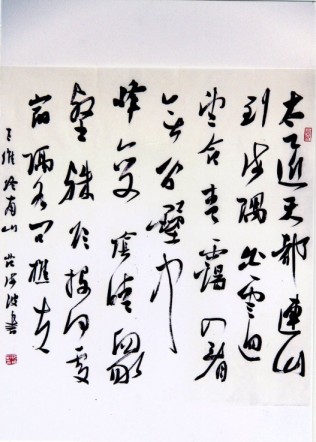 太乙近天都連山
到海隅白雲迴
望合青靄入看
無分野中
峰變陰晴眾
壑殊欲投處
宿隔水問樵夫
王維終南山書